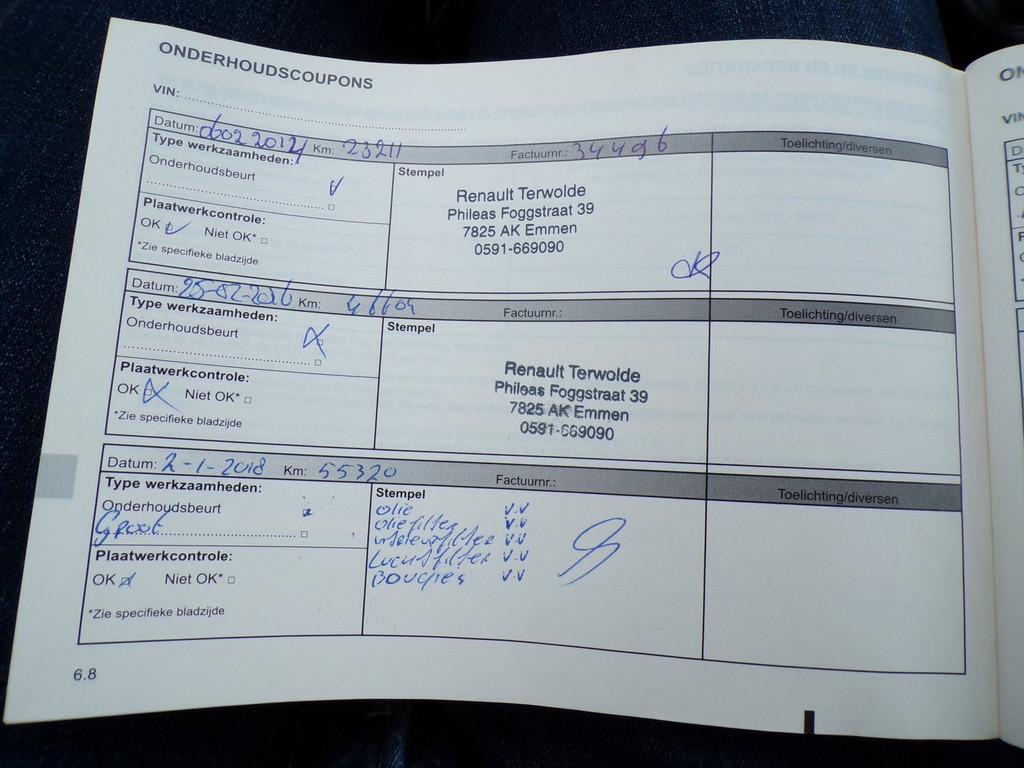 ONDERHOUDSCOUPONS
VIN:
Datum: Km: 23211 Factuurnr.: 34496 Toelichting/diversen
Type werkzaamheden:
Onderhoudsbeurt
Plaatwerkcontrole:
OK Niet OK*
*Zie specifieke bladzijde
Stempel
Renault Terwolde
Phileas Foggstraat 39
7825 AK Emmen
0591-669090
Datum: 25-02-2016 Km: Factuurnr.: Toelichting/diversen
Type werkzaamheden:
Onderhoudsbeurt
Plaatwerkcontrole:
OK Niet OK*
*Zie specifieke bladzijde
Stempel
Renault Terwolde
Phileas Foggstraat 39
7825 AK Emmen
0591-669090
Datum: 2-1-2018 Km: 55320 Factuurnr.: Toelichting/diversen
Type werkzaamheden:
Onderhoudsbeurt
Groot
Plaatwerkcontrole:
OK Niet OK*
*Zie specifieke bladzijde
Stempel
olie v.v
oliefilter v.v
interieurfilter v.v
Luchtfilter v.v
Bougies v.v
6.8